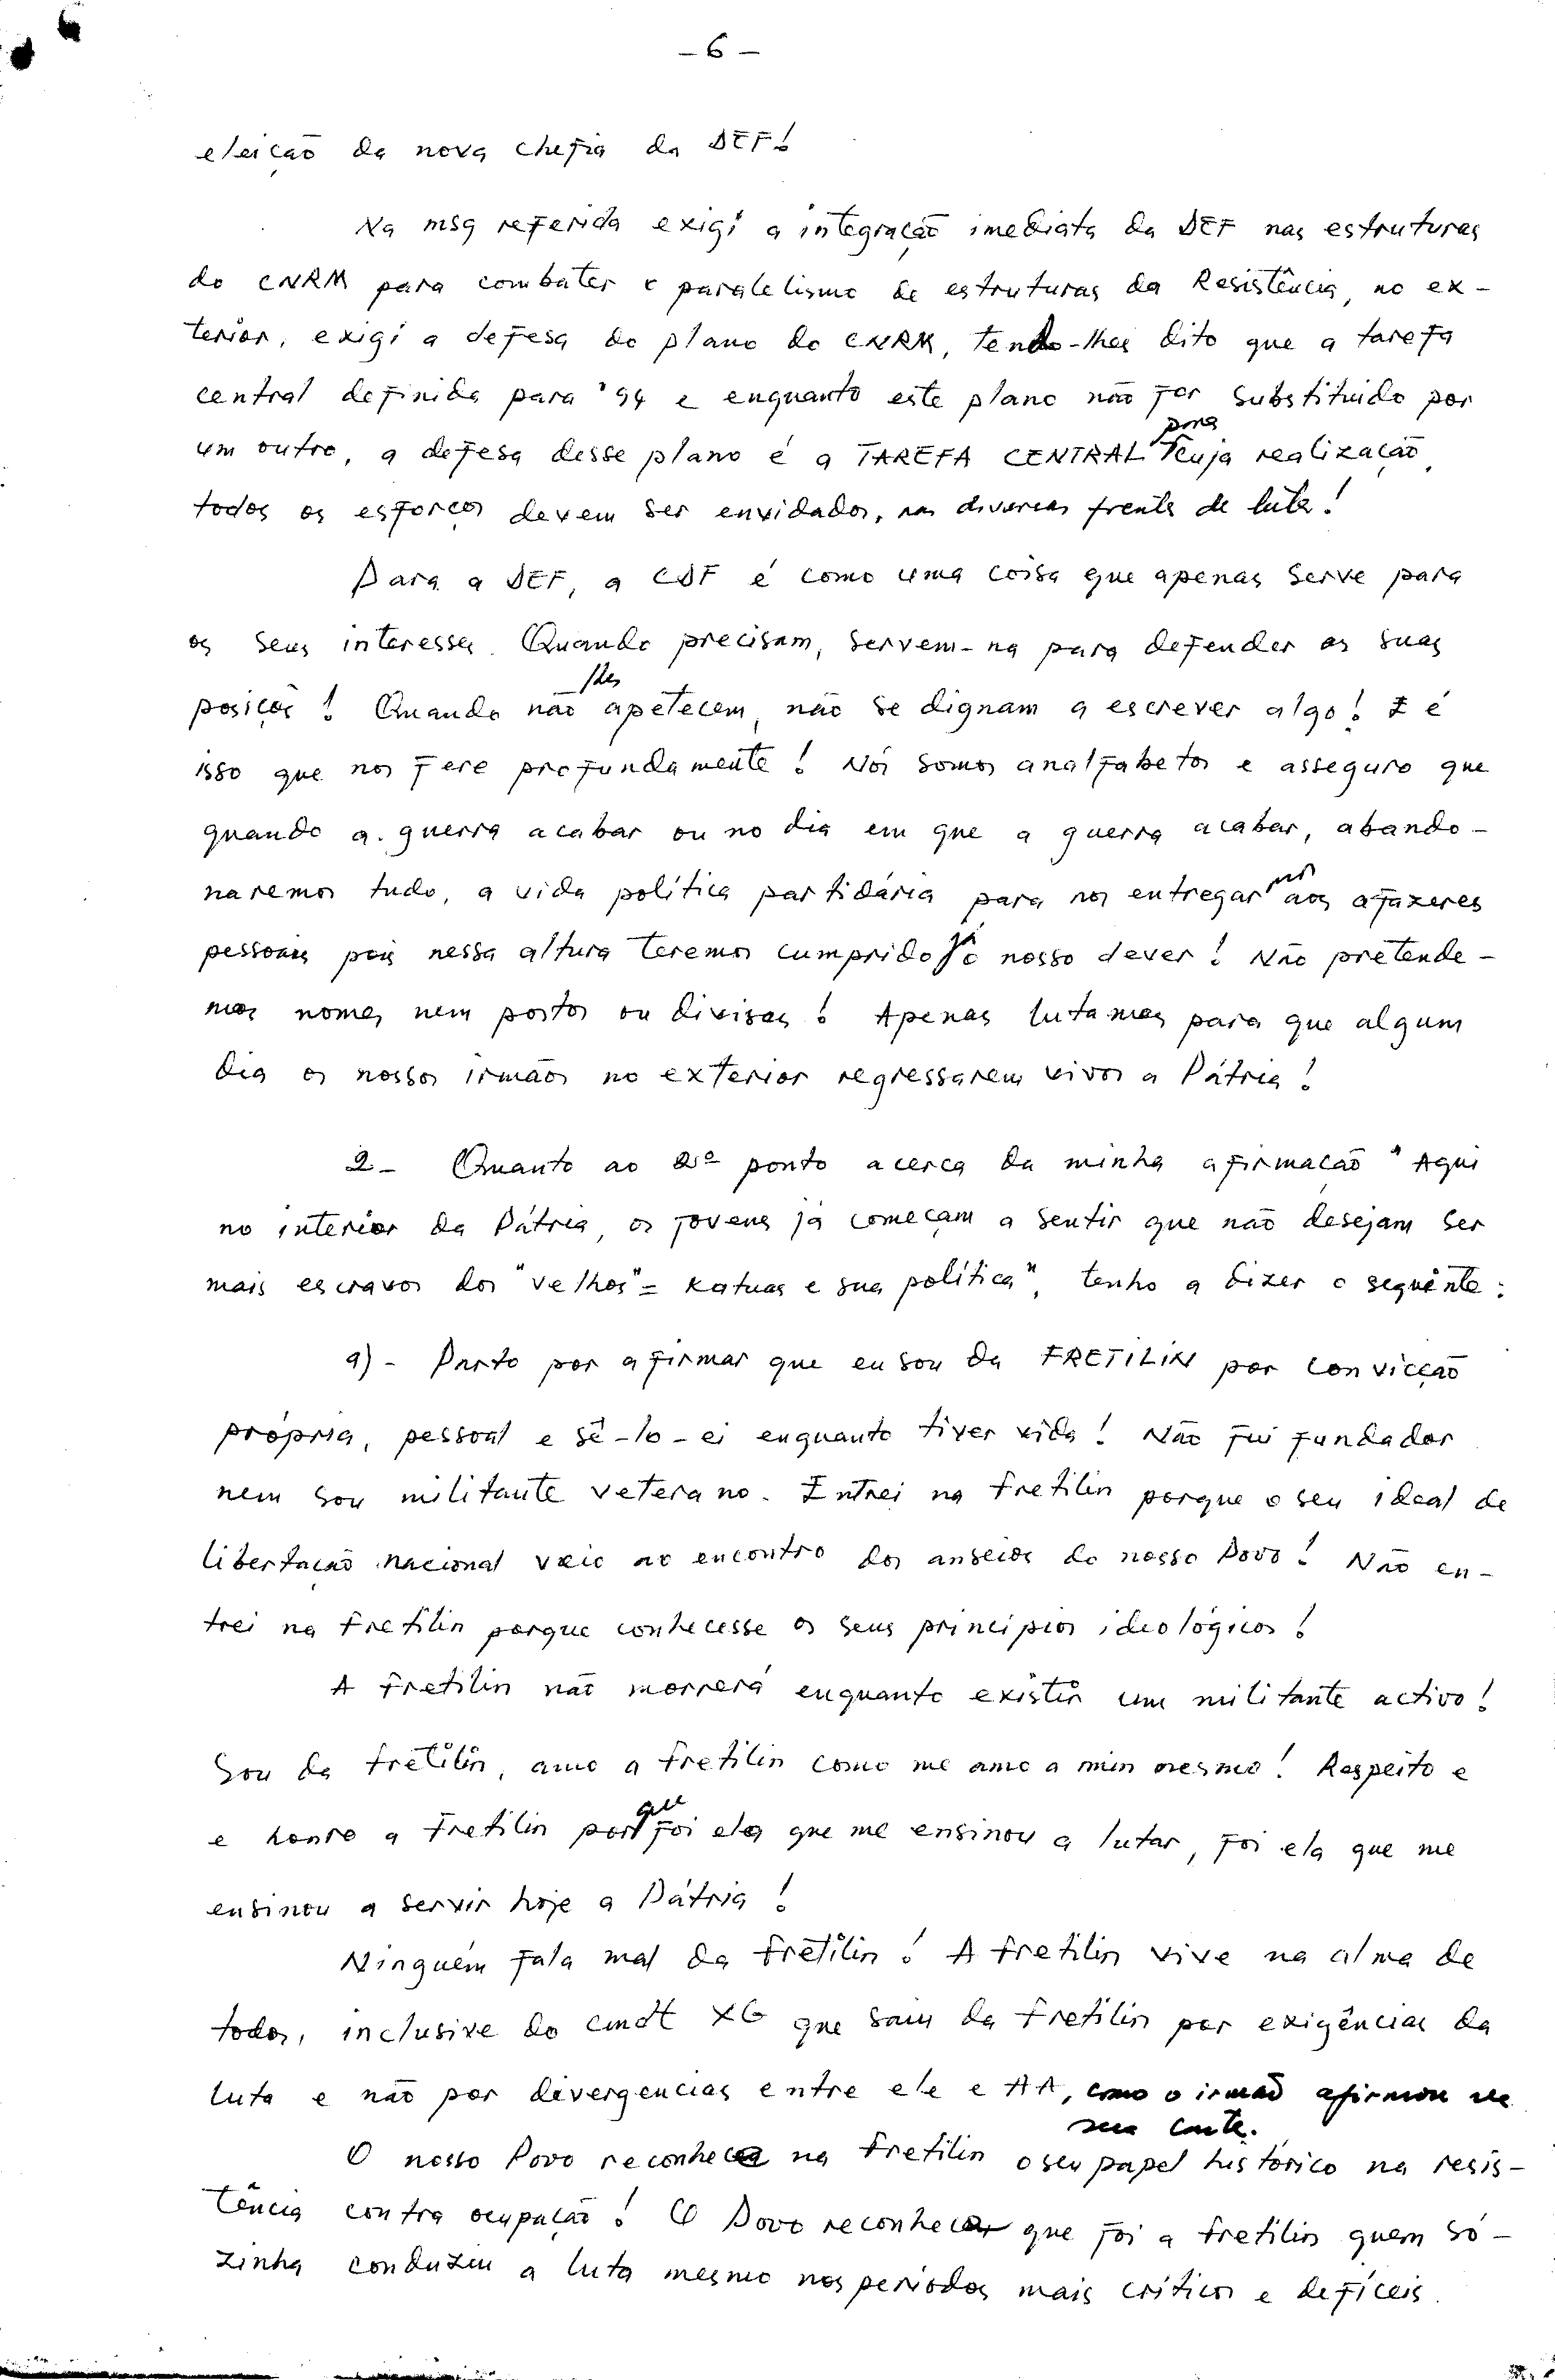 - 6 -
eleição da nova chefia da DEF!
Na msg referida exigi a integração imediata da DEF nas estruturas
do CNRM para combater o paralelismo de estruturas da Resistência, no ex-
terior, exigi a defesa do plano do CNRM, tendo-lhes dito que a tarefa
central definida para '94 e enquanto este plano não for substituído por
um outro, a defesa desse plano é a TAREFA CENTRAL para cuja realização,
todos os esforços devem ser envidados, nas diversas frentes de luta!
Para a DEF, a CDF é como uma coisa que apenas serve para
os seus interesses. Quando precisam, servem-na para defender as suas
posições! Quando não lhes apetecem, não se dignam a escrever algo! E é
isso que nos fere profundamente! Nós somos analfabetos e asseguro que
quando a guerra acabar ou no dia em que a guerra acabar, abando-
naremos tudo, a vida política partidária para nos entregarmos aos afazeres
pessoais pois nessa altura teremos cumprido já o nosso dever! Não pretende-
mos nomes nem postos ou divisas! Apenas lutamos para que algum
dia os nossos irmãos no exterior regressarem vivos a Pátria!
2- Quanto ao 2º ponto acerca da minha afirmação "Aqui
no interior da Pátria, os jovens já começam a sentir que não desejam ser
mais escravos dos "velhos" = katuas e sua política", tenho a dizer o seguinte:
a) - Parto por afirmar que eu sou da FRETILIN por convicção
própria, pessoal e sê-lo-ei enquanto tiver vida! Não fui fundador
nem sou militante veterano. Entrei na Fretilin porque o seu ideal de
libertação nacional veio ao encontro dos anseios do nosso Povo! Não en-
trei na Fretilin porque conhecesse os seus princípios ideológicos!
A Fretilin não morrerá enquanto existir um militante activo!
Sou da Fretilin, amo a Fretilin como me amo a mim mesmo! Respeito e
e honro a Fretilin porque foi ela que me ensinou a lutar, foi ela que me
ensinou a servir hoje a Pátria!
Ninguém fala mal da Fretilin! A Fretilin vive na alma de
todos, inclusive do cmdt XG que saiu da Fretilin por exigências da
luta e não por divergencias entre ele e AA, como o irmão afirmou na
sua carta.
O nosso Povo reconhece na Fretilin o seu papel histórico na resis-
tência contra ocupação! O Povo reconhece que foi a Fretilin quem só-
zinha conduziu a luta mesmo nos períodos mais críticos e defíceis.